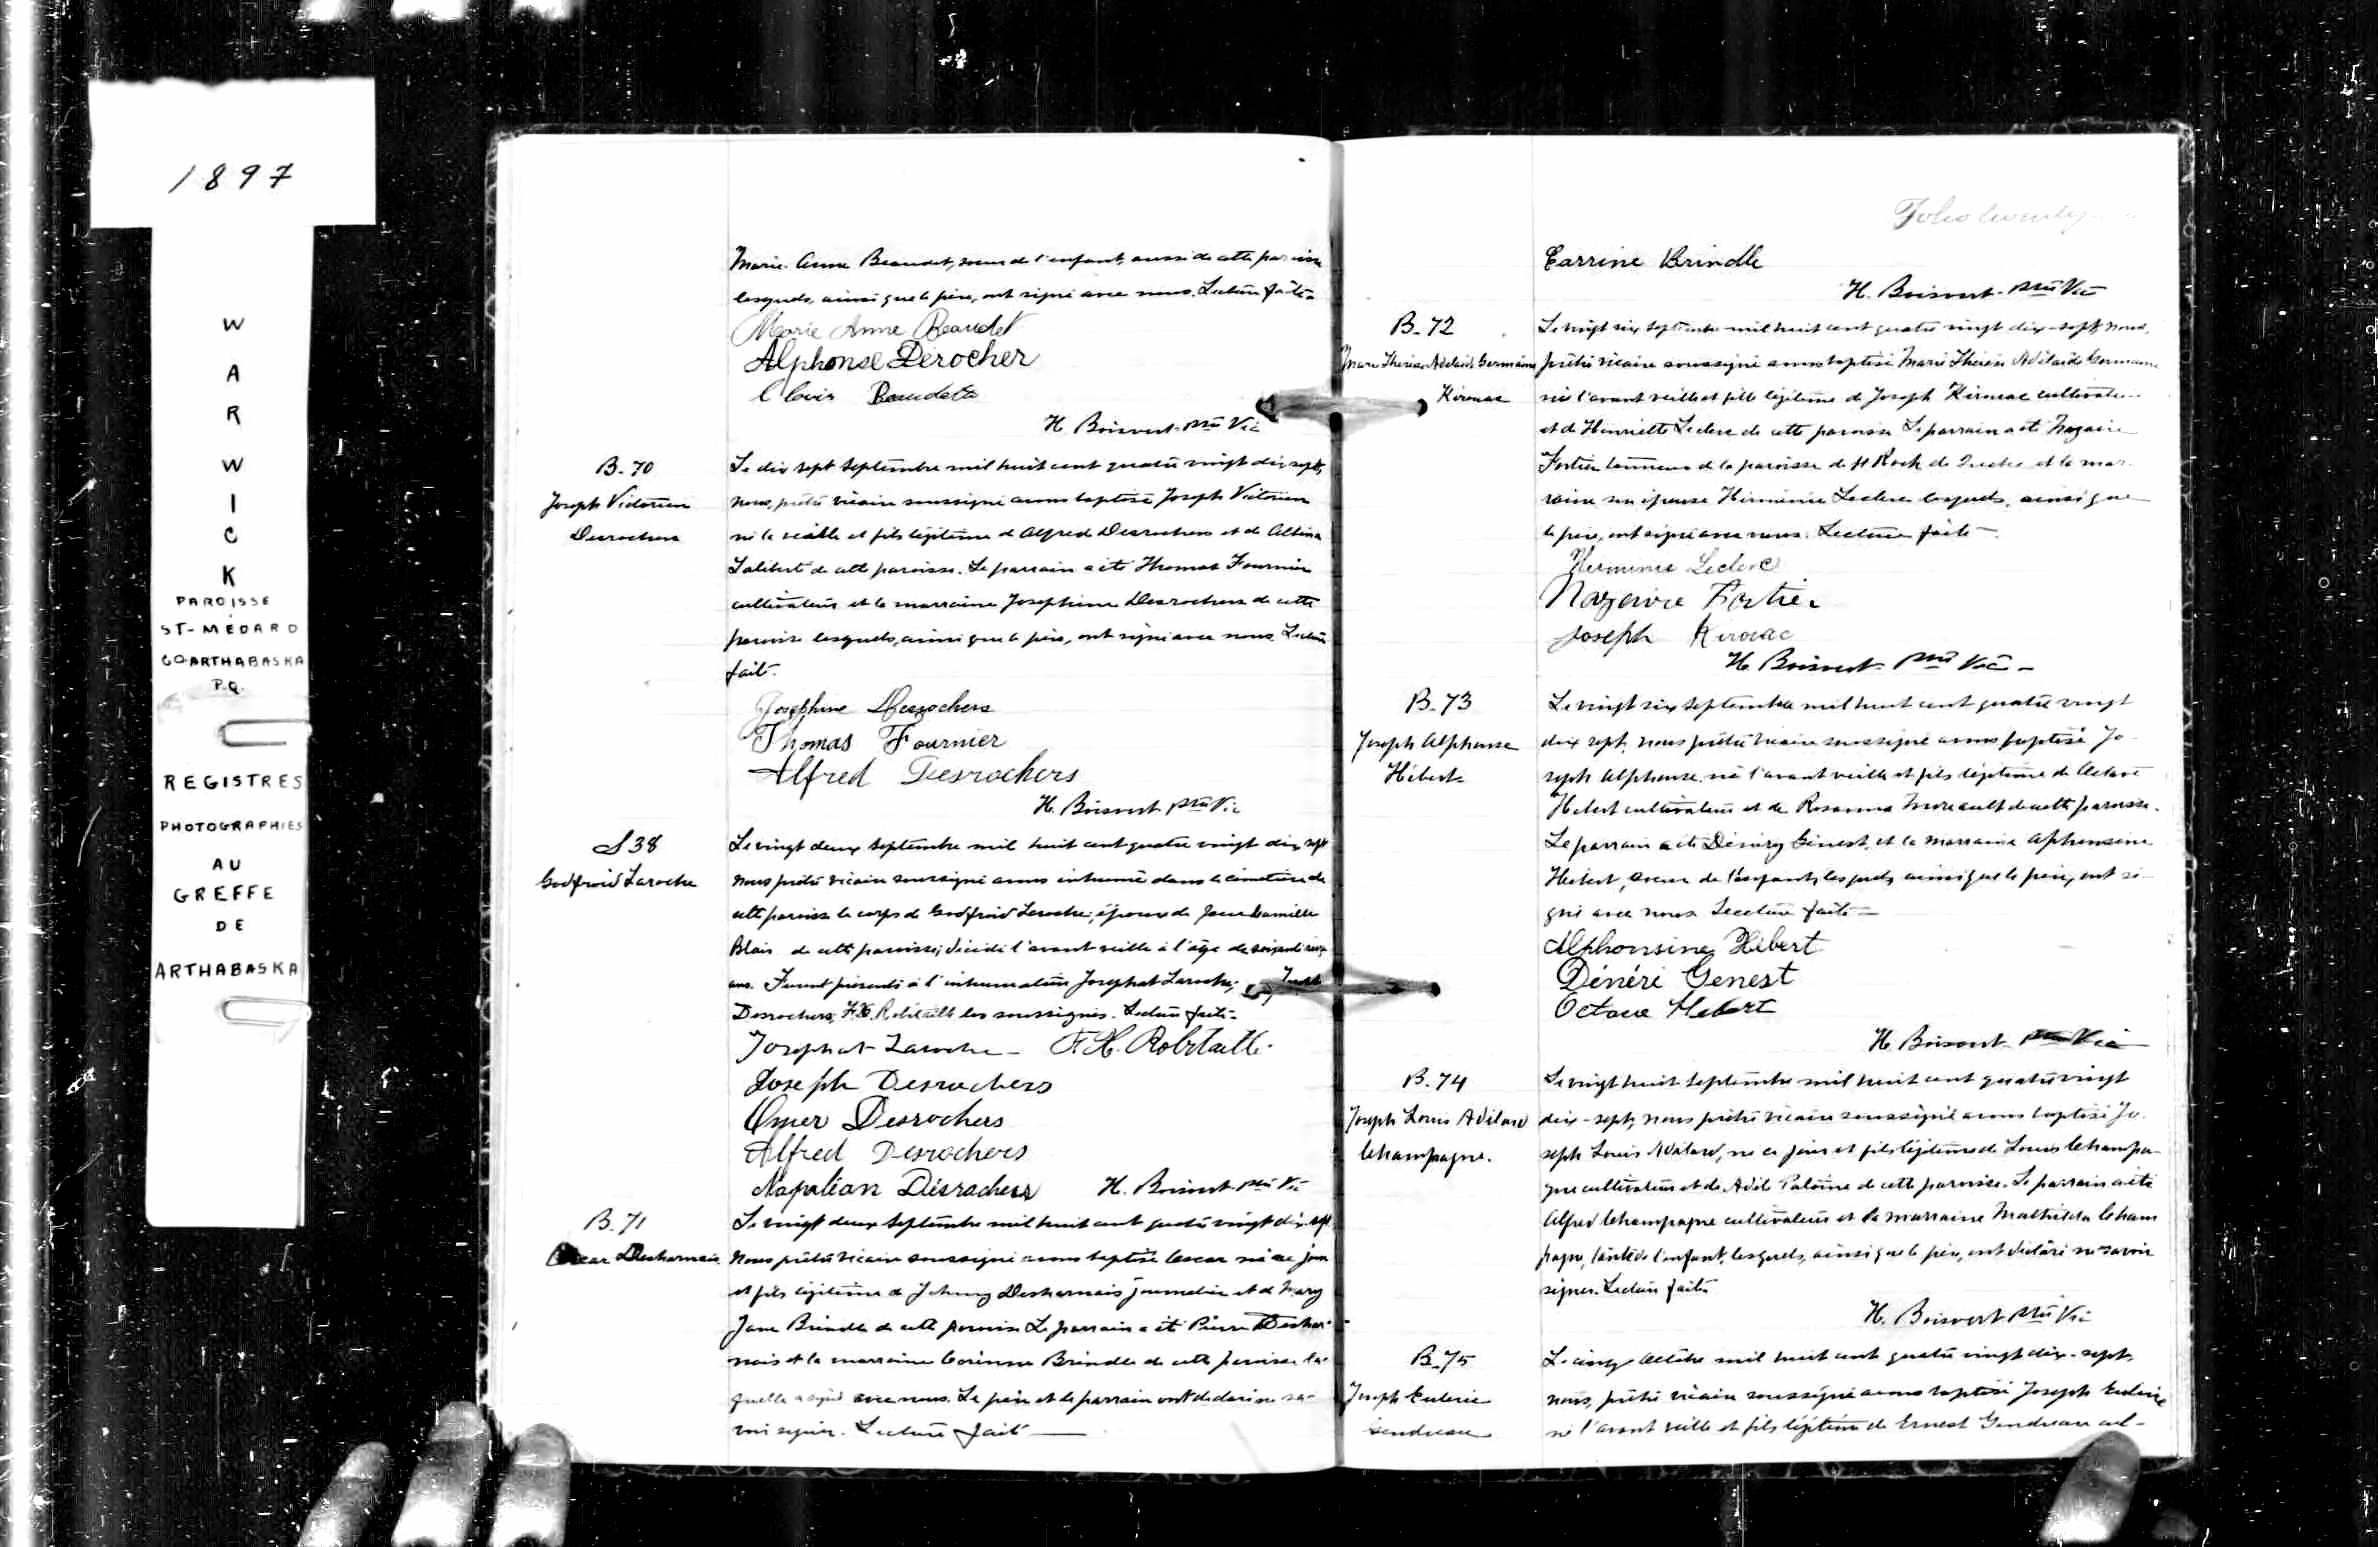 1897
W
A
R
W
I
C
K
PAROISSE
ST-MÉDARD
CO ARTHABASKA
P.Q.
REGISTRES
PHOTOGRAPHIÉS
AU
GREFFE
DE
ARTHABASKA
Marie Anne Beaudet, soeur de l'enfant, aussi de cette paroisse
lesquels, ainsi que le père, ont signé avec nous. Lecture faite
Marie Anne Beaudet
Alphonse Derocher
Clovis Beaudette
H. Boisvert Ptre Vic
B-70
Joseph Victorien
Desrochers
Le dix sept Septembre mil huit cent quatre vingt dix sept,
nous, prêtre vicaire soussigné avons baptisé Joseph Victorien
né la veille et fils légitime de Alfred Desrochers et de Albina
Laliberté de cette paroisse. Le parrain a été Thomas Fournier
cultivateur et la marraine Josephine Desrochers de cette
paroisse lesquels, ainsi que le père, ont signé avec nous Lecture
faite.
Josephine Desrochers
Thomas Fournier
Alfred Desrochers
H. Boisvert Ptre Vic
S 38
Godfroid Laroche
Le vingt deux Septembre mil huit cent quatre vingt dix sept
nous prêtre vicaire soussigné avons inhumé dans le cimetière de
cette paroisse le corps de Godfroid Laroche, époux de
Blais de cette paroisse, décédé l'avant veille à l'âge de
ans. Furent présents à l'inhumation Josephat Laroche,
Desrochers, F.X. Robitaille les soussignés. Lecture faite
Josephat Laroche F.X. Robitaille
Joseph Desrochers
Omer Desrochers
Alfred Desrochers
Napoléon Desrochers H. Boisvert Ptre Vic
B. 71
Oscar Desharnais
Le vingt deux Septembre mil huit cent quatre vingt dix sept
nous prêtre vicaire soussigné avons baptisé Oscar né ce jour
et fils légitime de Johnny Desharnais journalier et de Mary
Jane Brindle de cette paroisse Le parrain a été Pierre Deshar-
nais et la marraine Corinne Brindle de cette paroisse la-
quelle a signé avec nous. Le père et le parrain ont déclaré ne sa-
voir signer. Lecture faite
Folio twenty
Carrine Brindle
H. Boisvert Ptre Vic
B-72
Marie Thérèse Adelaide Germaine
Kirouac
Le vingt six Septembre mil huit cent quatre vingt dix-sept, nous,
prêtre vicaire soussigné avons baptisé Marie Thérèse Adélaïde Germaine
née l'avant veille et fille légitime de Joseph Kirouac cultivateur
et de Henriette Leclerc de cette paroisse Le parrain a été Nazaire
Fortier tanneur de la paroisse de St Roch de Québec et la mar-
raine son épouse Herminie Leclerc lesquels, ainsi que
le père, ont signé avec nous. Lecture faite
Herminie Leclerc
Nazaire Fortier
Joseph Kirouac
H. Boisvert Ptre Vic
B-73
Joseph Alphonse
Hébert
Le vingt six septembre mil huit cent quatre vingt
dix sept, nous prêtre vicaire soussigné avons baptisé Jo-
seph Alphonse, né l'avant veille et fils légitime de Octave
Hebert cultivateur et de Rosanna Moreault de cette paroisse.
Le parrain a été Dénéry Genest, et la marraine Alphonsine
Hebert, soeur de l'enfant, lesquels, ainsi que le père, ont si-
gné avec nous Lecture faite
Alphonsine Hébert
Dénéri Genest
Octave Hebert
H. Boisvert Ptre Vic
B-74
Joseph Louis Adélard
Lechampagne.
Le vingt huit Septembre mil huit cent quatre vingt
dix-sept, nous prêtre vicaire soussigné avons baptisé Jo-
seph Louis Adélard, né ce jour et fils légitime de Louis Lechampa-
gne cultivateur et de Adèle Patoine de cette paroisse. Le parrain a été
Alfred Lechampagne cultivateur et la marraine Mathilda Lecham
pagne, tante de l'enfant, lesquels, ainsi que le père, ont déclaré ne savoir
signer. Lecture faite
H. Boisvert Ptre Vic
B-75
Joseph
Gendreau
Le cinq Octobre mil huit cent quatre vingt dix-sept,
nous, prêtre vicaire soussigné avons baptisé Joseph
né l'avant veille et fils légitime de Ernest Gendreau cul-